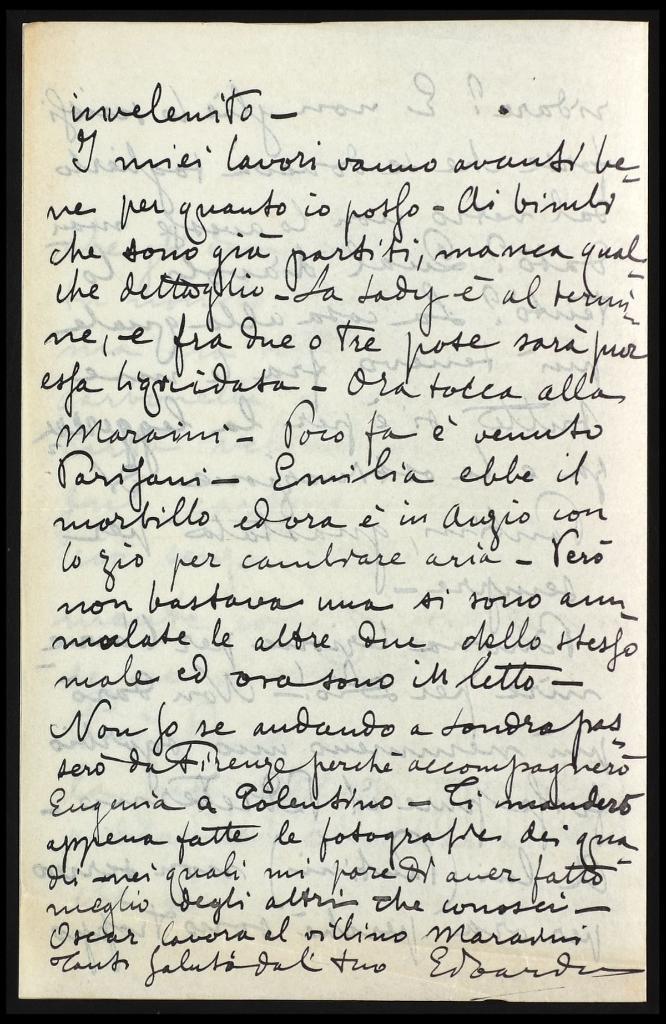 invelenito —
I miei lavori vanno avanti be-
ne per quanto io posso - Ai bimbi
che sono già partiti, manca qual
che dettaglio - La Lady è al termi-
ne, e fra due o tre pose sarà pur
essa liquidata - Ora tocca alla
Maraini - Poco fa è venuto
Parisani - Emilia ebbe il
morbillo ed ora è in Anzio con
lo zio per cambiare aria - Però
non bastava una si sono am
malate le altre due dello stesso
male ed ora sono in letto -
Non so se andando a Londra pas-
serò da Firenze perché accompagnerò
Eugenia a Tolentino - Ti manderò
appena fatte le fotografie dei qua-
dri - nei quali mi pare di aver fatto
meglio degli altri che conosci -
Oscar lavora al villino Maraini
Tanti saluti dal tuo Edoardo